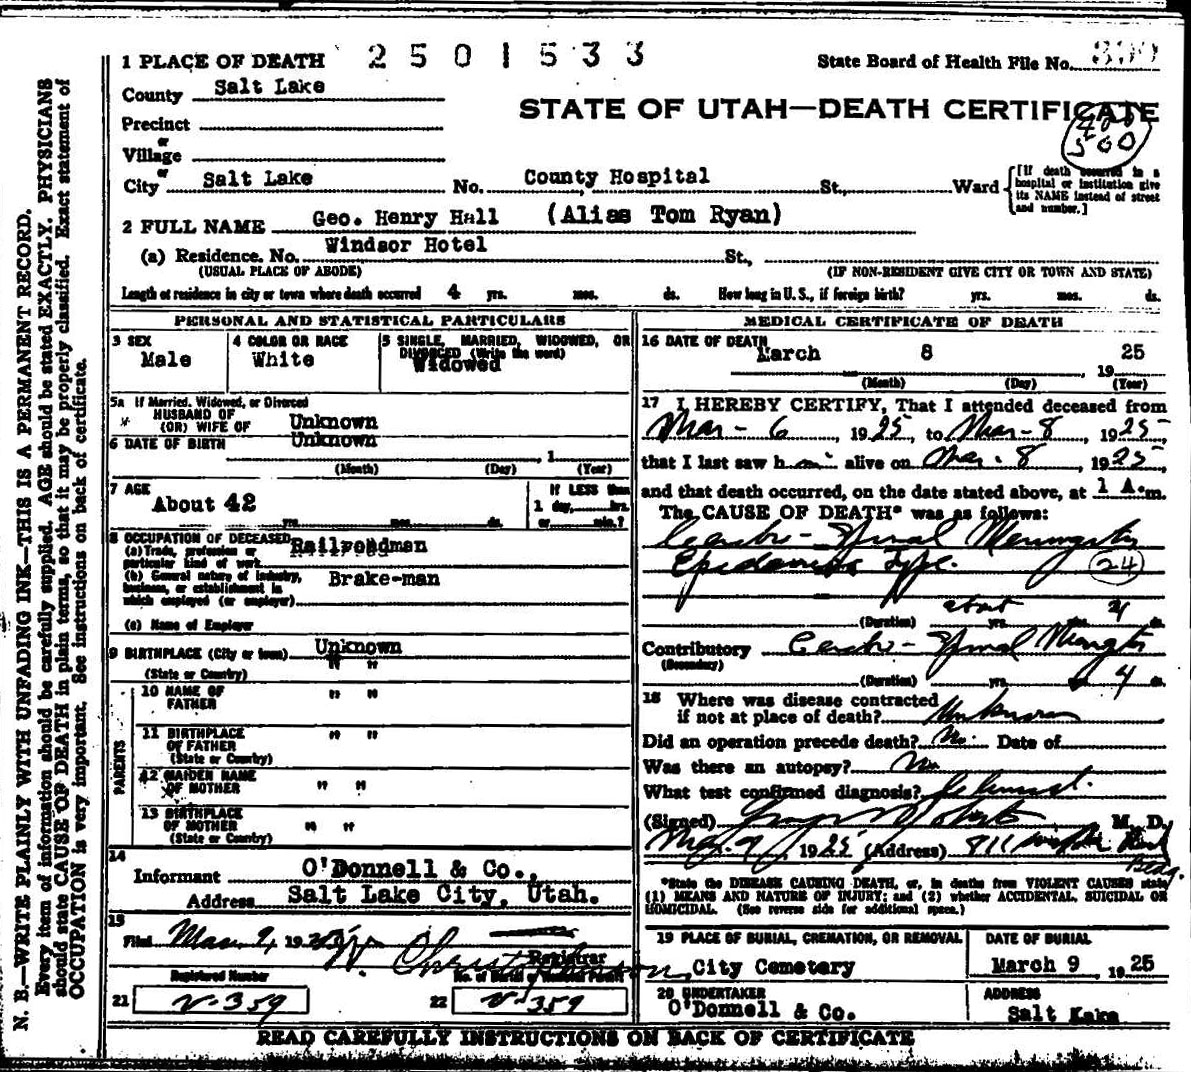 1 PLACE OF DEATH 2501533 State Board of Health File No.
County Salt Lake
STATE OF UTAH—DEATH CERTIFICATE
Precinct
400
500
or
Village
or
City Salt Lake No. County Hospital St., Ward
[If death occurred in a hospital or institution give its NAME instead of street and number.]
2 FULL NAME Geo. Henry Hall (Alias Tom Ryan)
(a) Residence. No. Windsor Hotel St.,
(USUAL PLACE OF ABODE) (IF NON-RESIDENT GIVE CITY OR TOWN AND STATE)
Length of residence in city or town where death occurred 4 yrs. mos. ds. How long in U. S., if foreign birth? yrs. mos. ds.
PERSONAL AND STATISTICAL PARTICULARS
3 SEX
Male
4 COLOR OR RACE
White
5 SINGLE, MARRIED, WIDOWED, OR
DIVORCED (Write the word)
Widowed
5a If Married, Widowed, or Divorced
HUSBAND OF
(OR) WIFE OF Unknown
6 DATE OF BIRTH Unknown
, 1
(Month) (Day) (Year)
7 AGE
About 42
yrs. mos. ds.
If LESS than
1 day, hrs.
or min.?
8 OCCUPATION OF DECEASED
(a) Trade, profession or
particular kind of work Railroadman
(b) General nature of industry,
business, or establishment in
which employed (or employer) Brake-man
(c) Name of Employer
9 BIRTHPLACE (City or town) Unknown
(State or Country) " "
PARENTS
10 NAME OF
FATHER " "
11 BIRTHPLACE
OF FATHER " "
(State or Country)
12 MAIDEN NAME
OF MOTHER " "
13 BIRTHPLACE
OF MOTHER " "
(State or Country)
14
Informant O'Donnell & Co.,
Address Salt Lake City, Utah.
15
Filed Mar. 9, 1925
Registrar
Registered Number
21 V-359
22 V-359
MEDICAL CERTIFICATE OF DEATH
16 DATE OF DEATH
March 8 25
19
(Month) (Day) (Year)
17 I HEREBY CERTIFY, That I attended deceased from
Mar - 6, 1925, to Mar - 8, 1925,
that I last saw him alive on Mar. 8, 1925,
and that death occurred, on the date stated above, at 1 A. m.
The CAUSE OF DEATH* was as follows:
Cerebro-Spinal Meningitis
Epidemic Type. 24
about 4
(Duration) yrs.
Contributory Cerebro-Spinal Meningitis
(Secondary)
(Duration) yrs. 4 ds.
18 Where was disease contracted
if not at place of death? Unknown
Did an operation precede death? No. Date of
Was there an autopsy? No
What test confirmed diagnosis? Clinical.
(Signed) M. D.
Mar. 9, 1925 (Address) 811
Bldg.
*State the DISEASE CAUSING DEATH, or, in deaths from VIOLENT CAUSES state
(1) MEANS AND NATURE OF INJURY; and (2) whether ACCIDENTAL, SUICIDAL OR
HOMICIDAL. (See reverse side for additional space.)
19 PLACE OF BURIAL, CREMATION, OR REMOVAL
City Cemetery
DATE OF BURIAL
March 9 1925
20 UNDERTAKER
O'Donnell & Co.
ADDRESS
Salt Kake
READ CAREFULLY INSTRUCTIONS ON BACK OF CERTIFICATE
N. B.—WRITE PLAINLY WITH UNFADING INK—THIS IS A PERMANENT RECORD.
Every item of information should be carefully supplied. AGE should be stated EXACTLY. PHYSICIANS
should state CAUSE OF DEATH in plain terms, so that it may be properly classified. Exact statement of
OCCUPATION is very important. See instructions on back of certificate.